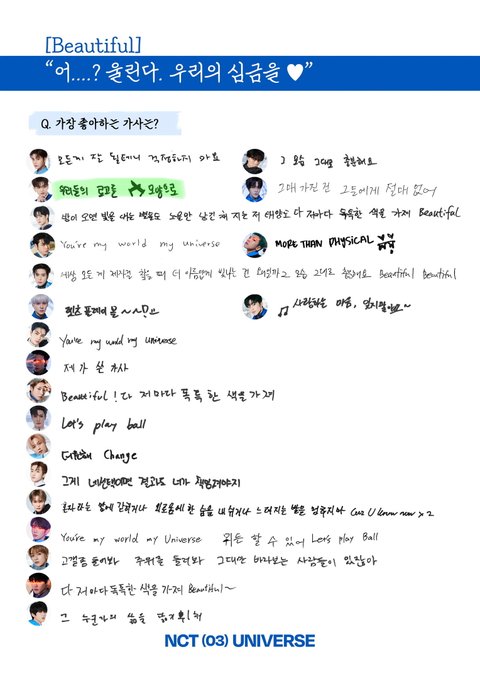 [Beautiful]
“어....? 울린다. 우리의 심금을 ♥”
Q. 가장 좋아하는 가사는?
모든게 잘 될테니 걱정하지 마요
그 모습 그대로 충분해요
우리들의 로고를 모양으로
그대 가진 건 그들에게 절대 없어
밤이 오면 빛을 내는 별들도 노을만 남긴 채 지는 저 태양도 다 저마다 독특한 색을 가져 Beautiful
You're my world my universe
MORE THAN PHYSICAL
세상 모든 게 제자리를 할 때 더 아름답게 빛나는 건 그 모습 그대로 Beautiful Beautiful
렛츠 플레이 볼~~!
♫ 사랑하는 마음, 잊지말아요~
You're my world my universe
제가 쓴 가사
Beautiful! 다 저마다 독특한 색을 가져
Let's play ball
Change
그게 네 선택이면 결과도 네가 책임져야지
혼자라는 벽에 갇히거나 외로움에 한 숨을 내쉬거나 느려지는 발을 멈추지마 Cuz U know now x2
You're my world my Universe 뭐든 할 수 있어 Let's play Ball
고개를 들어봐 주위를 둘러봐 그대만 바라보는 사람들이 있잖아
다 저마다 독특한 색을 가져 Beautiful~
그 누군가의 삶을
NCT (03) UNIVERSE